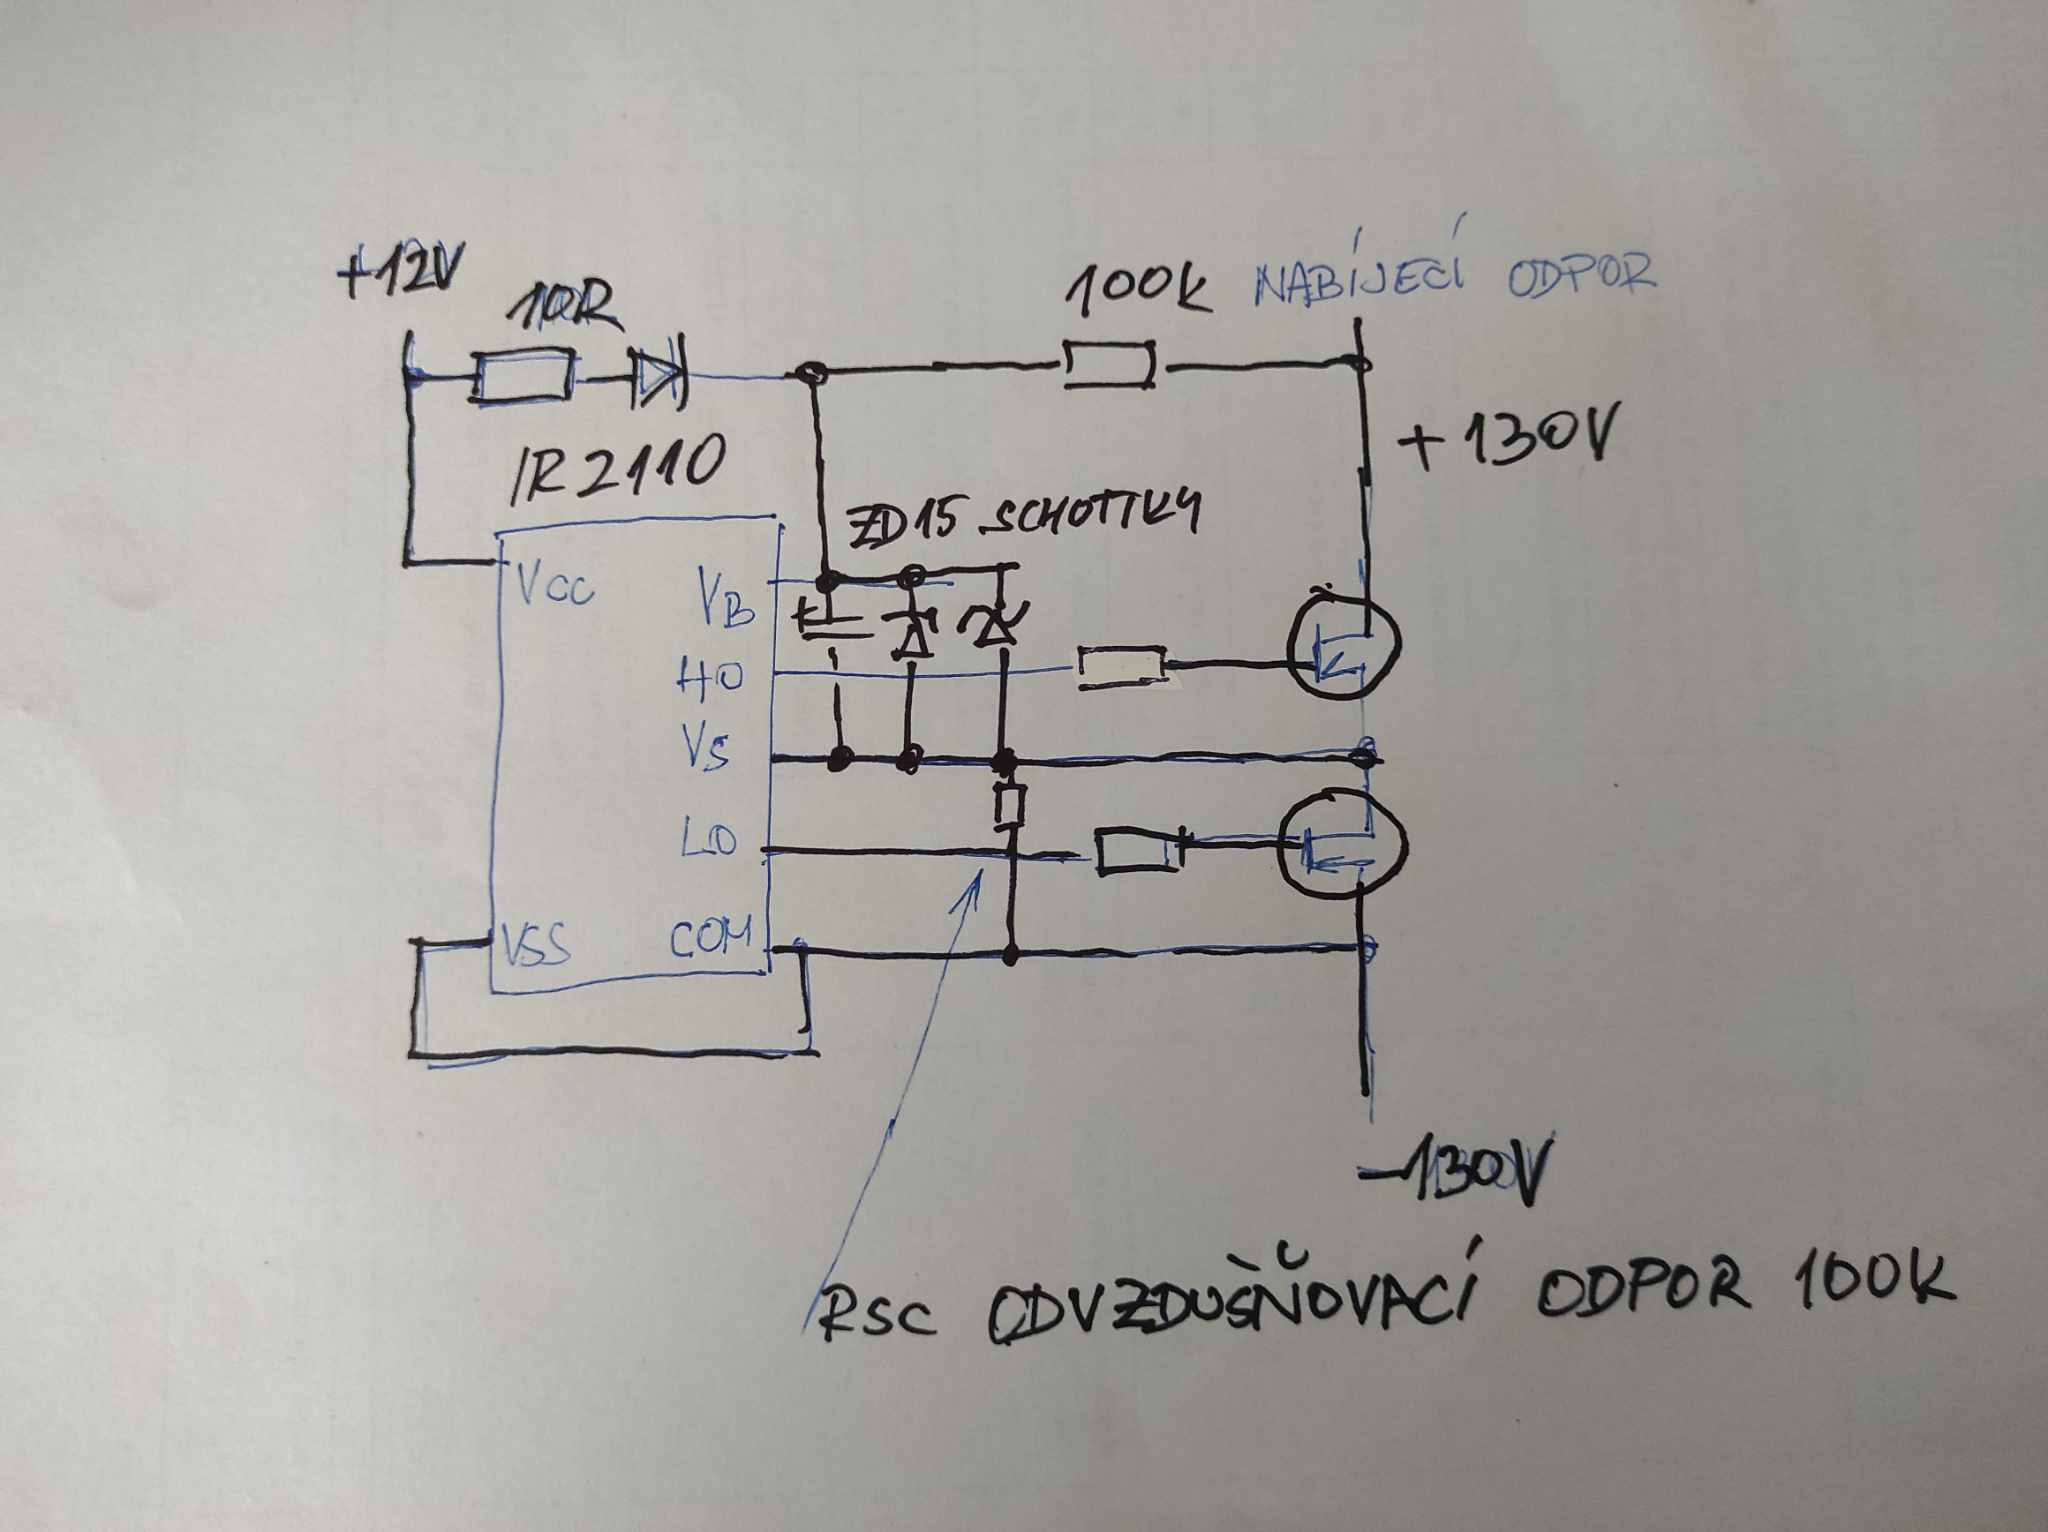 +12V
10R
100k NABÍJECÍ ODPOR
IR2110
+130V
ZD15 SCHOTTKY
VCC
VB
HO
VS
LO
VSS
COM
-130V
RSC ODVZDUŠŇOVACÍ ODPOR 100K